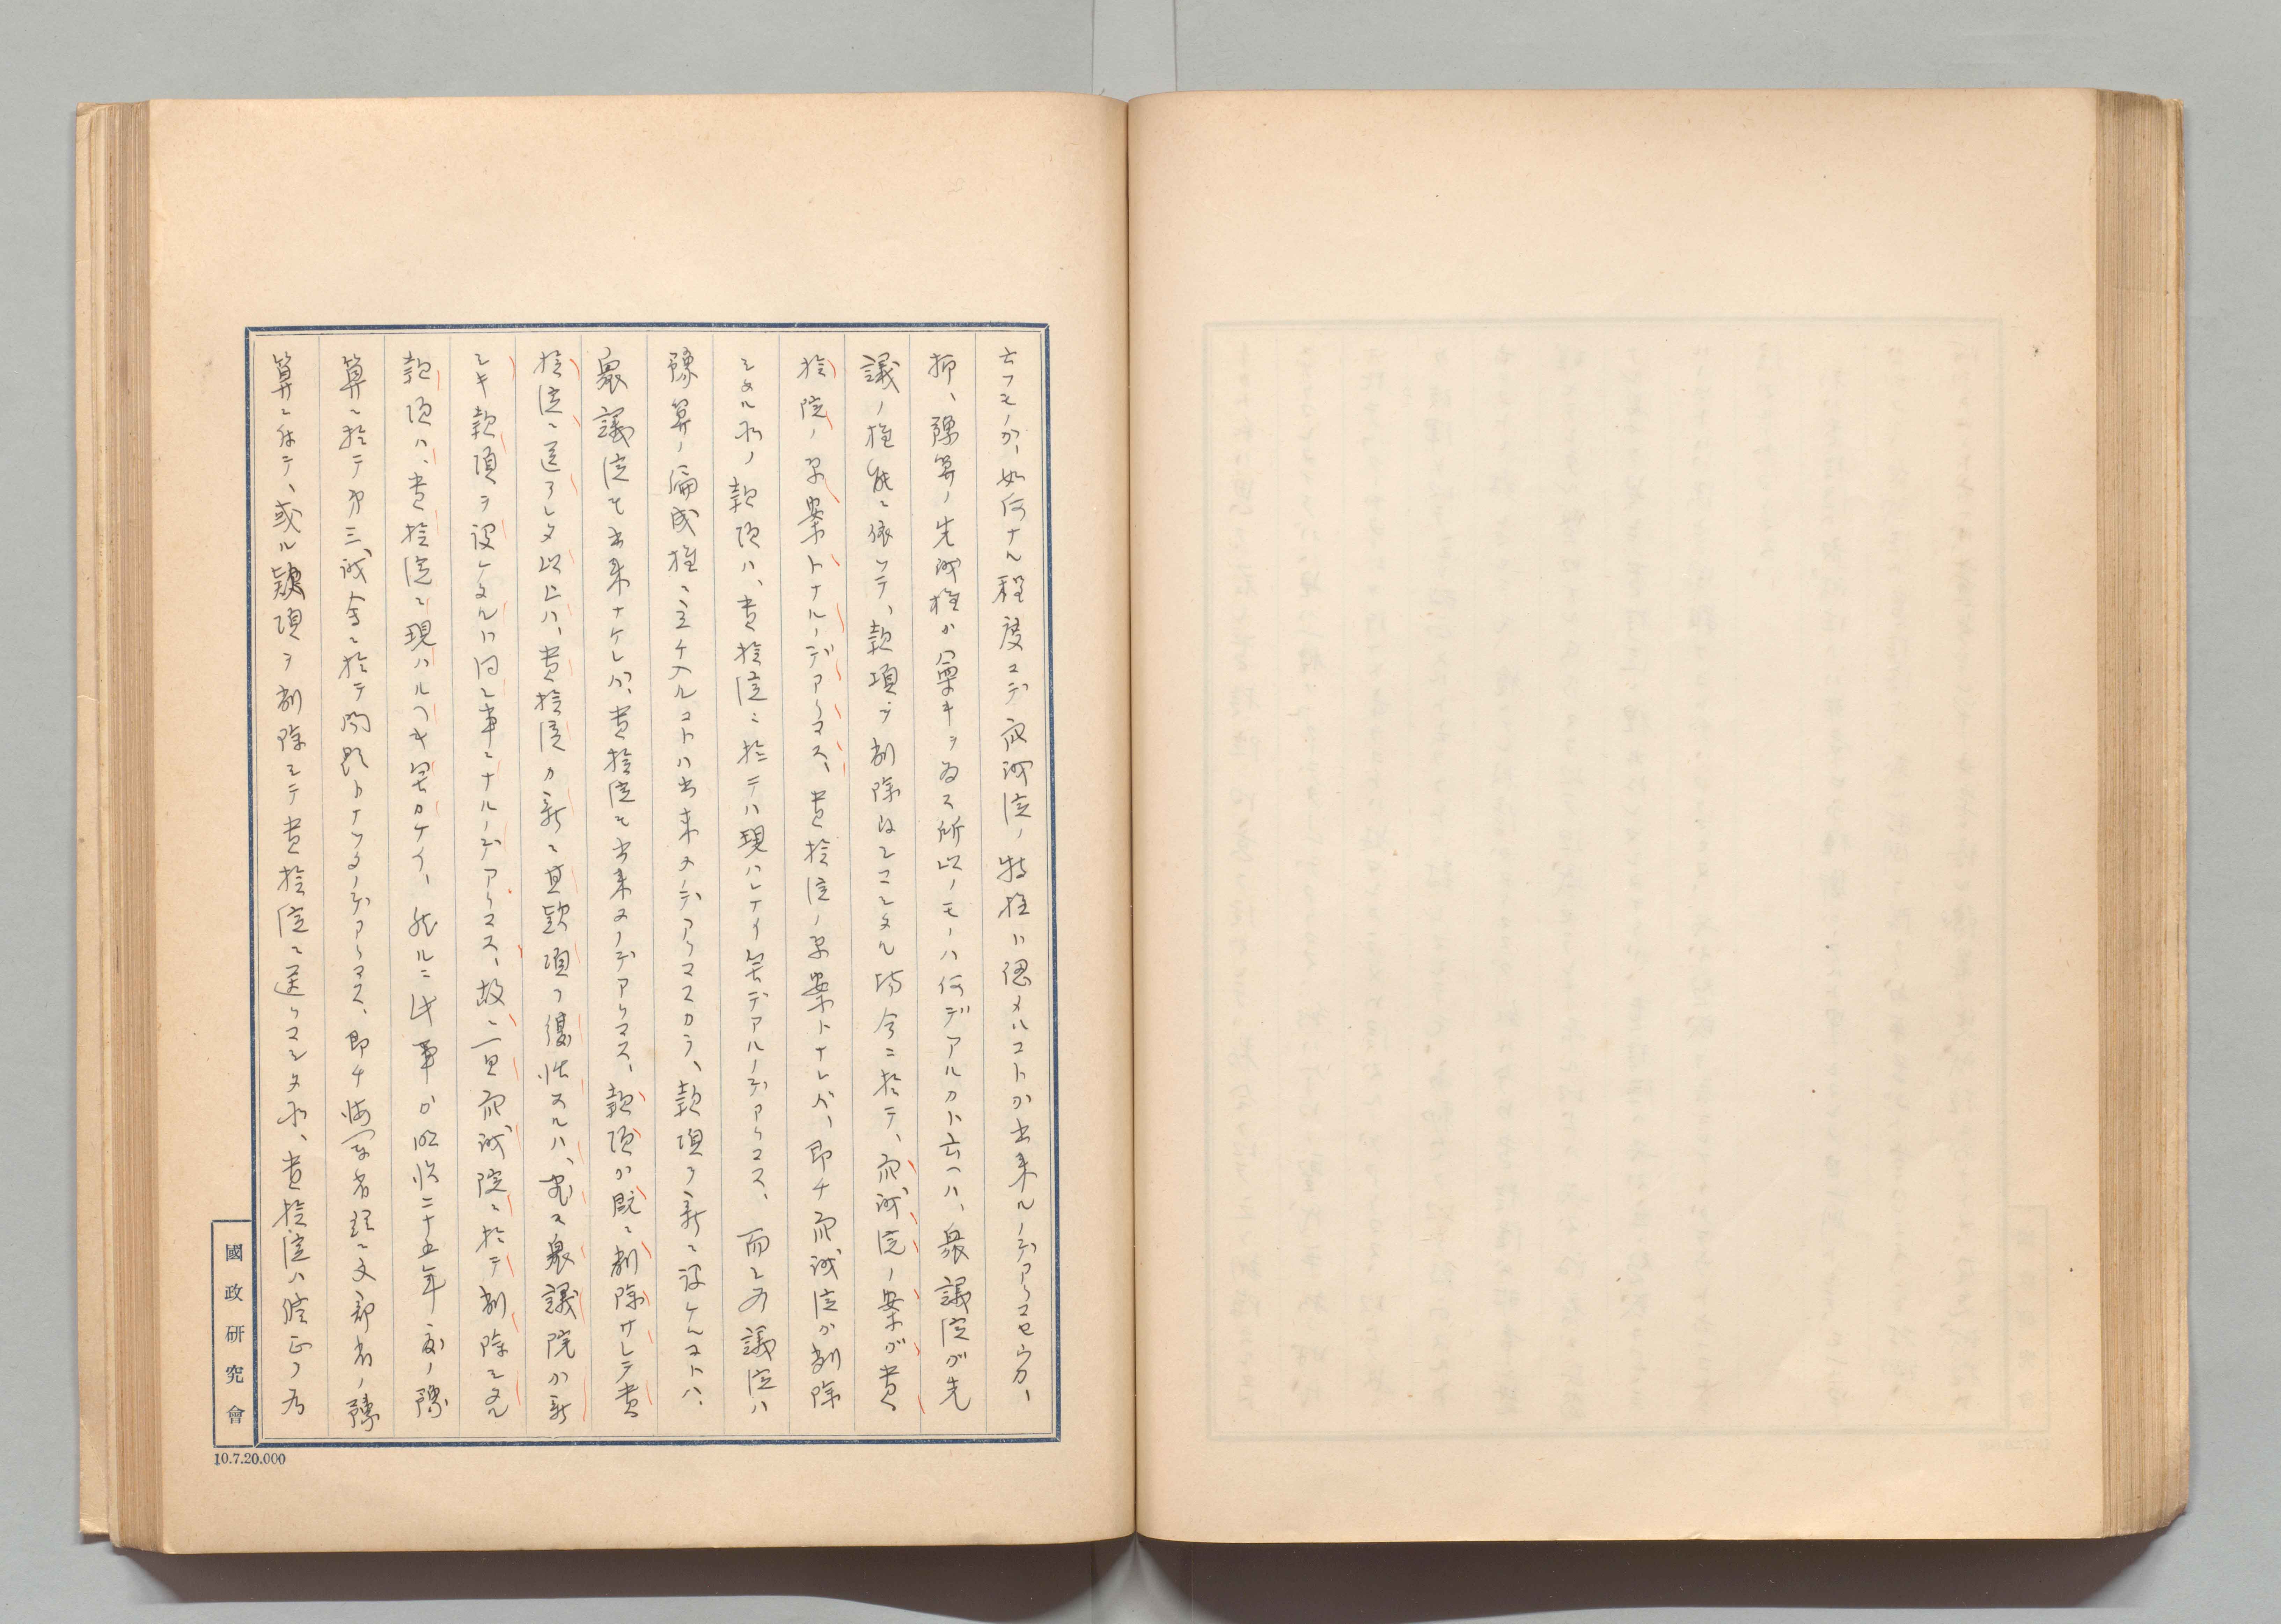 云フモノカ、如何ナル程度マデ衆議院ノ特権ハ認メルコトガ出来ルノデアリマセウカ、
抑、豫算ノ先議権ガ重キヲ為ス所以ノモノハ何デアルカト云ヘハ、衆議院ガ先
議ノ権能ニ依ツテ、款項ヲ削除致シマシタル場合ニ於テ、衆議院ノ案ガ貴
族院ノ原案トナルノデアリマス、貴族院ノ原案トナレバ、即チ衆議院ガ削除
シタル所ノ款項ハ、貴族院ニ於テハ現ハレナイ筈デアルノデアリマス、而シテ議院ハ
豫算ノ編成権ニ立チ入ルコトハ出来ヌノデアリマスカラ、款項ヲ新ニ設ケルコトハ、
衆議院モ出来ナケレバ、貴族院モ出来ヌノデアリマス、款項ガ既ニ削除サレテ貴
族院ニ送ラレタ以上ハ、貴族院ガ新ニ其款項ヲ復活スルハ、宛モ衆議院ガ新
シキ款項ヲ設ケタルト同シ事ニナルノデアリマス、故ニ一旦衆議院ニ於テ削除シタル
款項ハ、貴族院ニ現ハルヘキ筈カナイ、然ルニ此事ガ明治二十五年度ノ豫
算ニ於テ第三議会ニ於テ問題トナツタノデアリマス、即チ海軍省並ニ文部省ノ豫
算ニ付テ、或ル款項ヲ削除シテ貴族院ニ送リマシタ所、貴族院ハ修正ヲ為
國政研究會
10.7.20.000